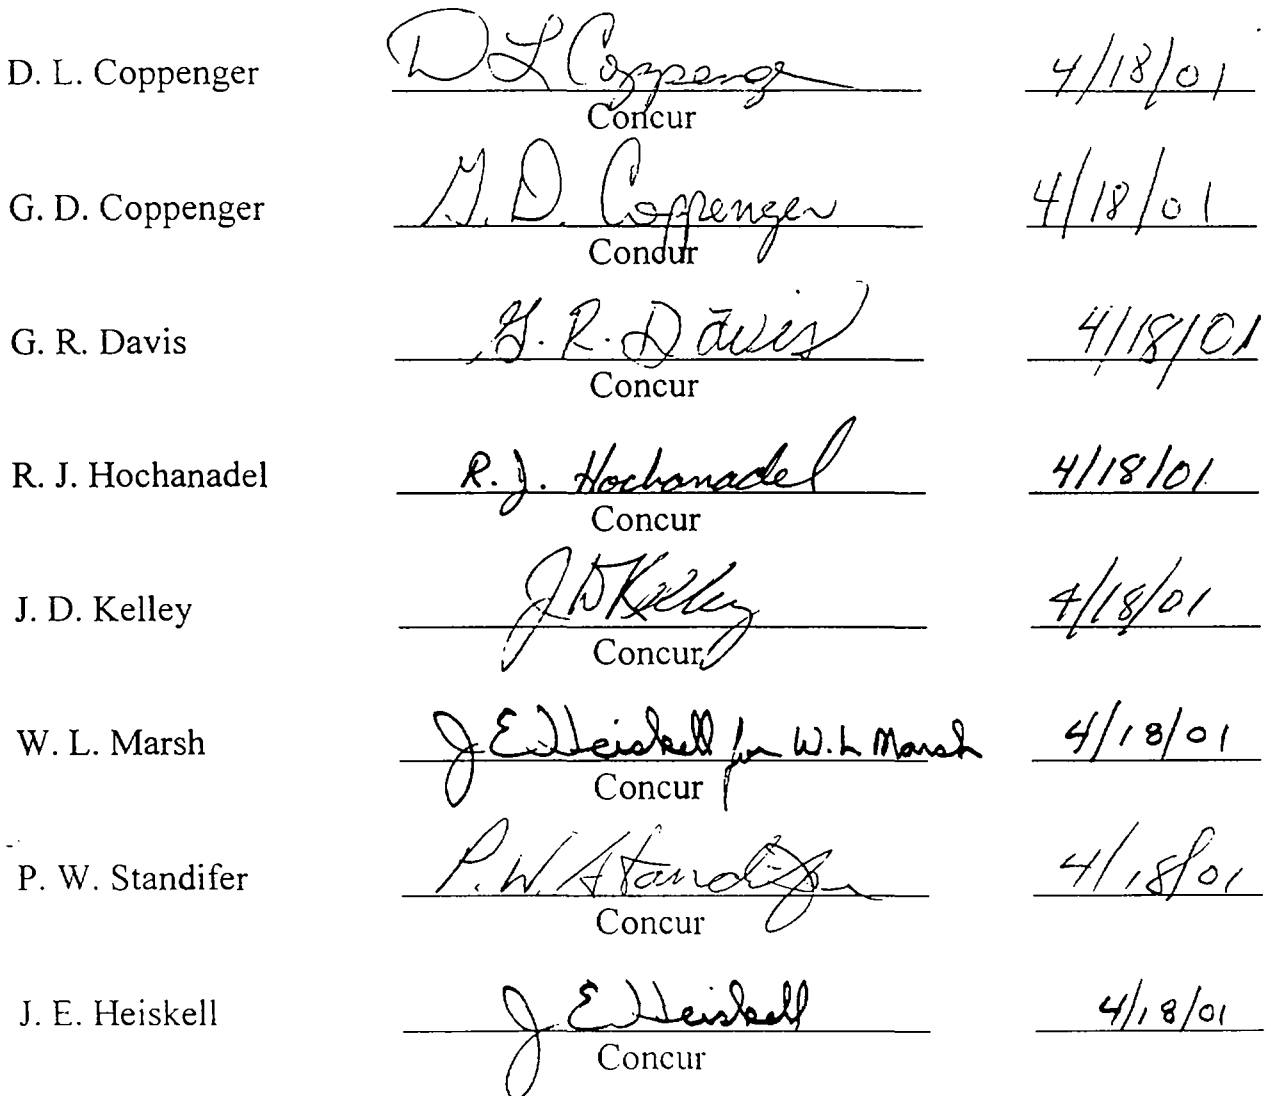 D. L. Coppenger D L Coppenger 4/18/01
Concur
G. D. Coppenger G. D. Coppenger 4/18/01
Concur
G. R. Davis G. R. Davis 4/18/01
Concur
R. J. Hochanadel R. J. Hochanadel 4/18/01
Concur
J. D. Kelley J D Kelley 4/18/01
Concur
W. L. Marsh J E Heiskell for W. L Marsh 4/18/01
Concur
P. W. Standifer P. W. Standifer 4/18/01
Concur
J. E. Heiskell J E Heiskell 4/18/01
Concur